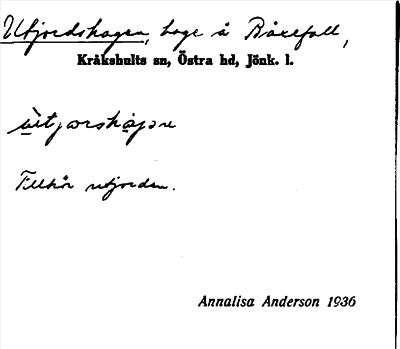 Utjordshagen, hage å Båxefall,
Kråkshults sn, Östra hd, Jönk. l.
Tillhör utjorden.
Annalisa Anderson 1936